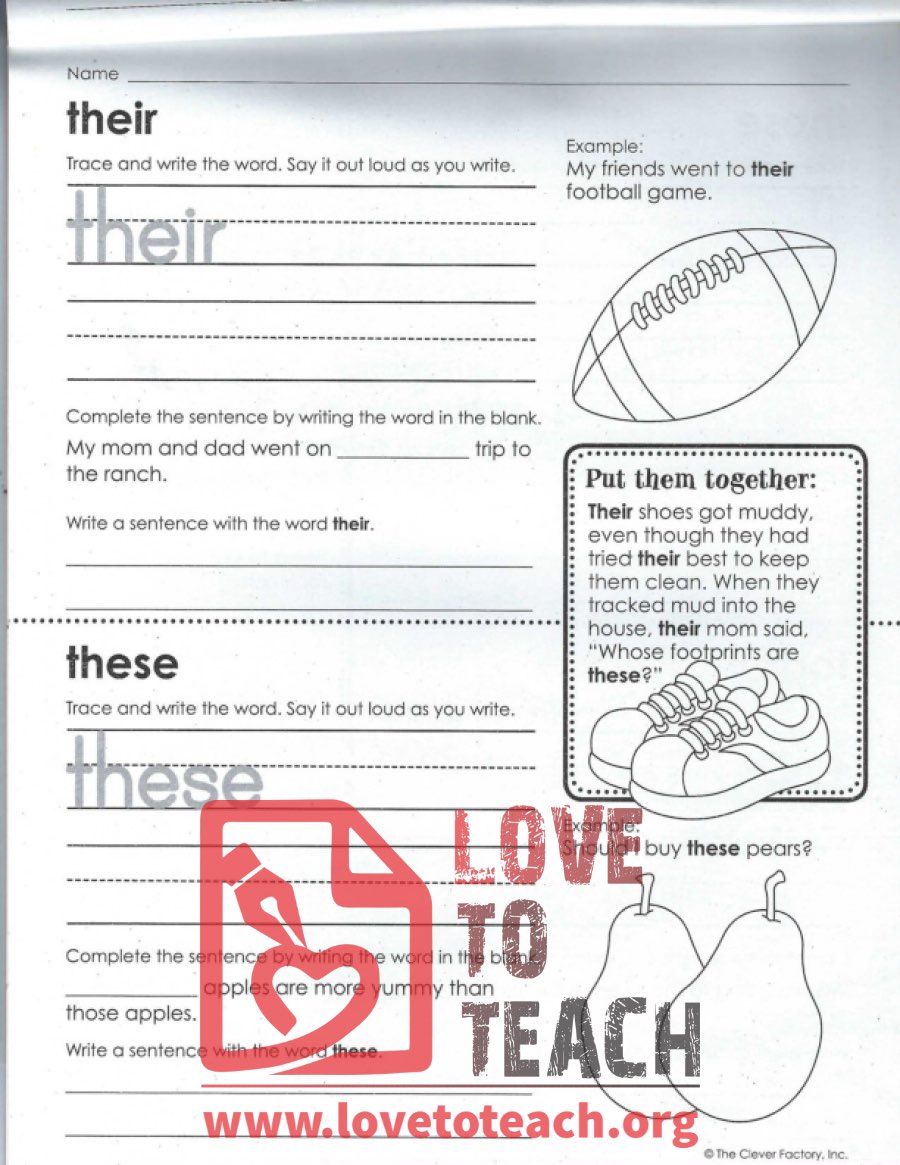 Name
their
Trace and write the word. Say it out loud as you write.
their
Complete the sentence by writing the word in the blank.
My mom and dad went on ____________ trip to
the ranch.
Write a sentence with the word their.
Example:
My friends went to their
football game.
Put them together:
Their shoes got muddy,
even though they had
tried their best to keep
them clean. When they
tracked mud into the
house, their mom said,
"Whose footprints are
these?"
these
Trace and write the word. Say it out loud as you write.
these
Complete the sentence by writing the word in the blank.
____________ apples are more yummy than
those apples.
Write a sentence with the word these.
Example:
Should I buy these pears?
LOVE
TO
TEACH
www.lovetoteach.org
© The Clever Factory, Inc.